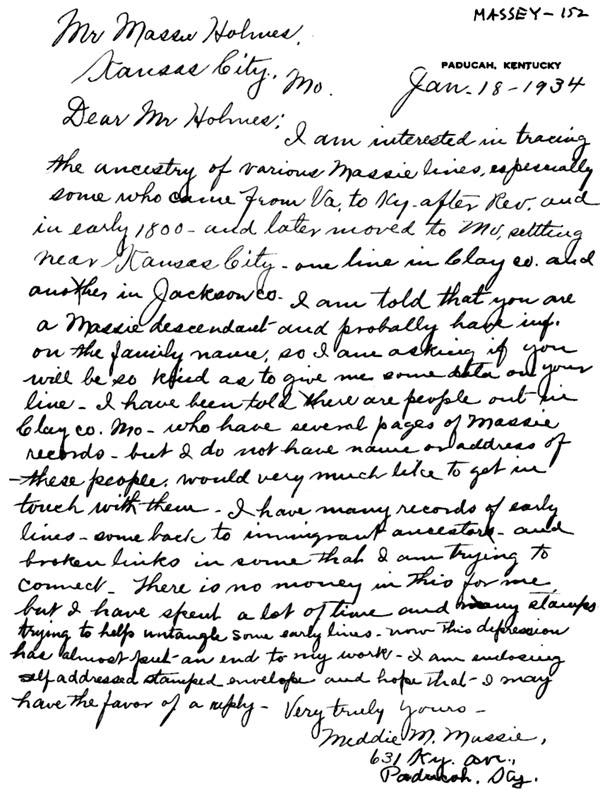 MASSEY-152
Mr Massie Holmes,
Kansas City, Mo.
PADUCAH, KENTUCKY
Jan. 18-1934
Dear Mr Holmes:
I am interested in tracing
the ancestry of various Massie lines, especially
some who came from Va, to Ky. after Rev. and
in early 1800 - and later moved to Mo, settling
near Kansas City - one line in Clay co. and
another in Jackson co. I am told that you are
a Massie descendant and probally have inf.
on the family name, so I am asking if you
will be so kind as to give me some data on your
line - I have been told there are people out in
Clay co. Mo - who have several pages of Massie
records - but I do not have name or address of
these people, would very much like to get in
touch with them - I have many records of early
lines - some back to immigrant ancestors - and
broken links in some that I am trying to
connect - There is no money in this for me
but I have spent a lot of time and many stamps
trying to help untangle some early lines - now this depression
has almost put an end to my work - I am enclosing
self addressed stamped envelope and hope that I may
have the favor of a reply - Very truly yours -
Meddie M. Massie,
631 Ky. ave.,
Paducah, Ky.